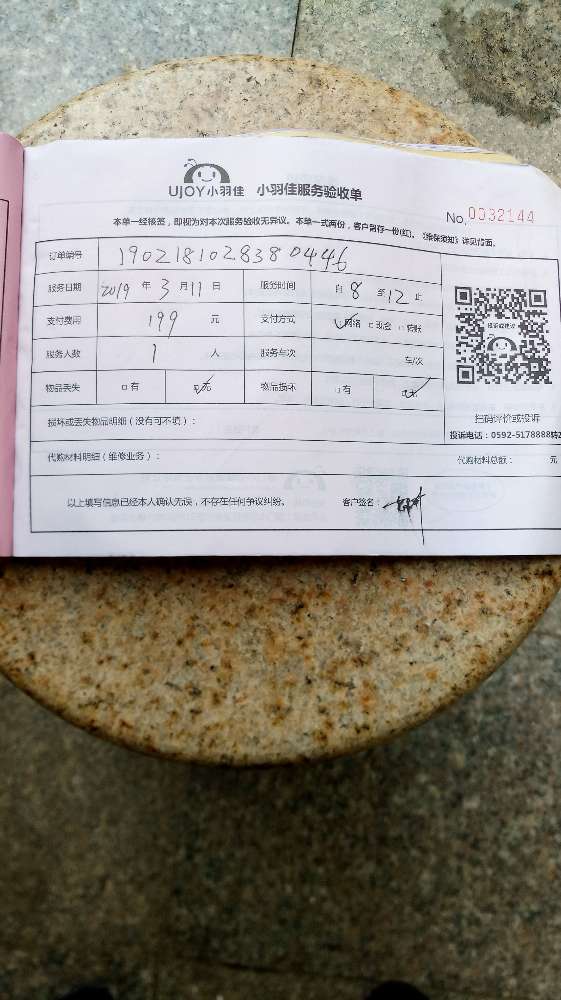 UJOY小羽佳 小羽佳服务验收单
No. 0032144
本单一经接签，即视为对本次服务验收无异议。本单一式两份，客户留存一份(红)。《维保须知》详见背面。
订单编号 190218102838 0446
服务日期 2019 年 3 月 11 日 服务时间 自 8 至 12 止
支付费用 199 元 支付方式 ☑网络 □现金 □转账
服务人数 1 人 服务车次 车/次
物品丢失 □有 ☑无 物品损坏 □有 ☑无
扫码评价或投诉
投诉电话：0592-5178888转2
损坏或丢失物品明细（没有可不填）：
代购材料明细（维修业务）： 代购材料总额： 元
以上填写信息已经本人确认无误，不存在任何争议纠纷。 客户签名：